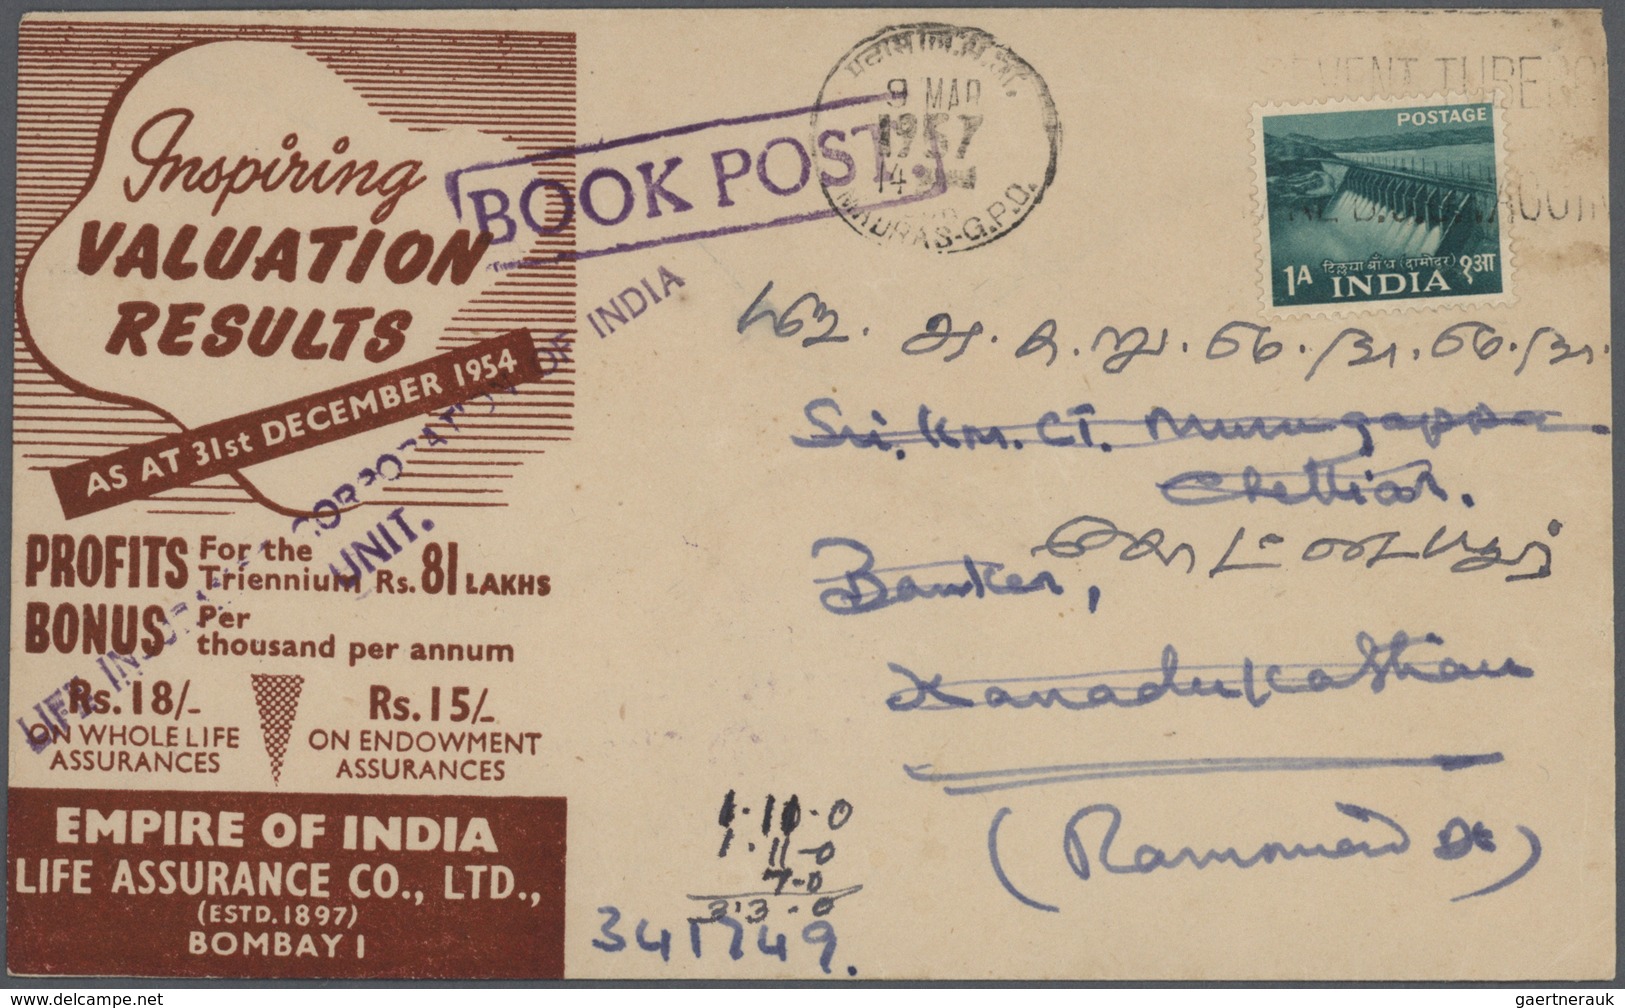 Inspiring
VALUATION
RESULTS
AS AT 31st DECEMBER 1954
PROFITS For the Triennium Rs. 81 LAKHS
BONUS Per thousand per annum
Rs. 18/-
ON WHOLE LIFE
ASSURANCES
Rs. 15/-
ON ENDOWMENT
ASSURANCES
EMPIRE OF INDIA
LIFE ASSURANCE CO., LTD.,
(ESTD. 1897)
BOMBAY 1
LIFE INSURANCE CORPORATION OF INDIA
UNIT.
BOOK POST.
9 MAR
1957
MADRAS-G.P.O.
VENT TUBER
POSTAGE
1A दिलया बाँध (दामोदर) १आ
INDIA
Sri. Km. CT. Murugappa
Chettiar.
Banker,
Kanadukathan
(Ramnad Dt)
1-11-0
1-11-0
7-0
3-13-0
341749.
delcampe.net
gaertnerauk